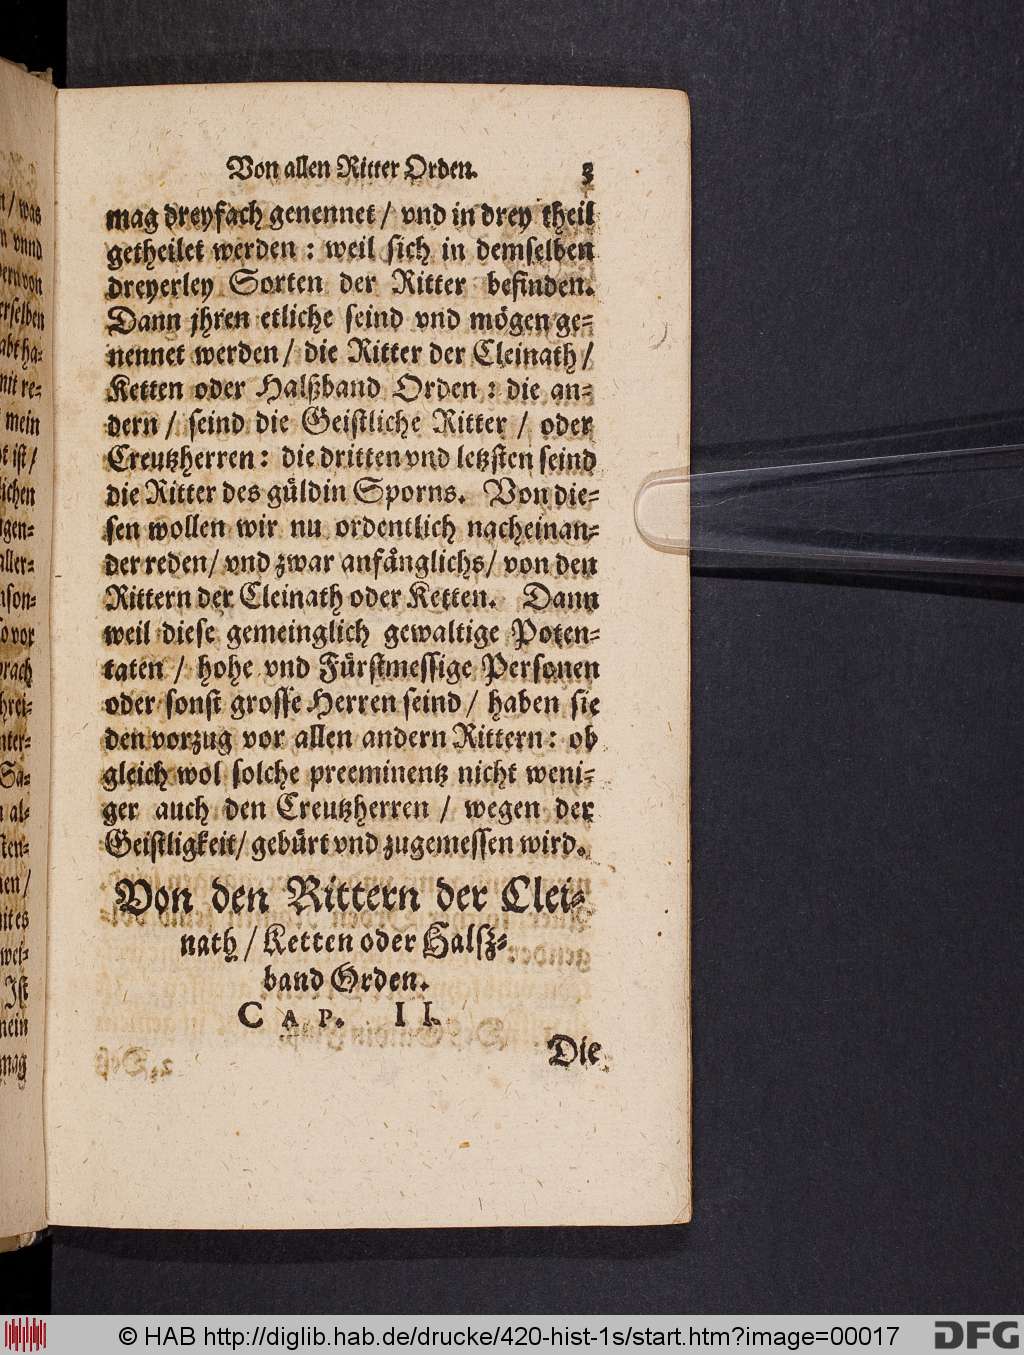 Von allen Ritter Orden. 3
mag dreyfach genennet / vnd in drey theil
getheilet werden : weil sich in demselben
dreyerley Sorten der Ritter befinden.
Dann jhren etliche seind vnd mögen ge-
nennet werden / die Ritter der Cleinath /
Ketten oder Halßband Orden : die an-
dern / seind die Geistliche Ritter / oder
Creutzherren : die dritten vnd letzsten seind
die Ritter des güldin Sporns. Von die-
sen wollen wir nu ordentlich nacheinan-
der reden / vnd zwar anfänglichs / von den
Rittern der Cleinath oder Ketten. Dann
weil diese gemeinglich gewaltige Poten-
taten / hohe vnd Fürstmessige Personen
oder sonst grosse Herren seind / haben sie
den vorzug vor allen andern Rittern : ob
gleich wol solche preeminentz nicht weni-
ger auch den Creutzherren / wegen der
Geistligkeit / gebürt vnd zugemessen wird.
Von den Rittern der Clei-
nath / Ketten oder Halsz-
band Orden.
CAP. II.
Die
/ was
vnnd
von
erselben
abt ha-
mit re-
mein
ist /
lichen
gen-
aller-
so vor
nter-
Sa-
al-
sten-
en /
it es
wei-
Ist
mein
mag
© HAB http://diglib.hab.de/drucke/420-hist-1s/start.htm?image=00017
DFG